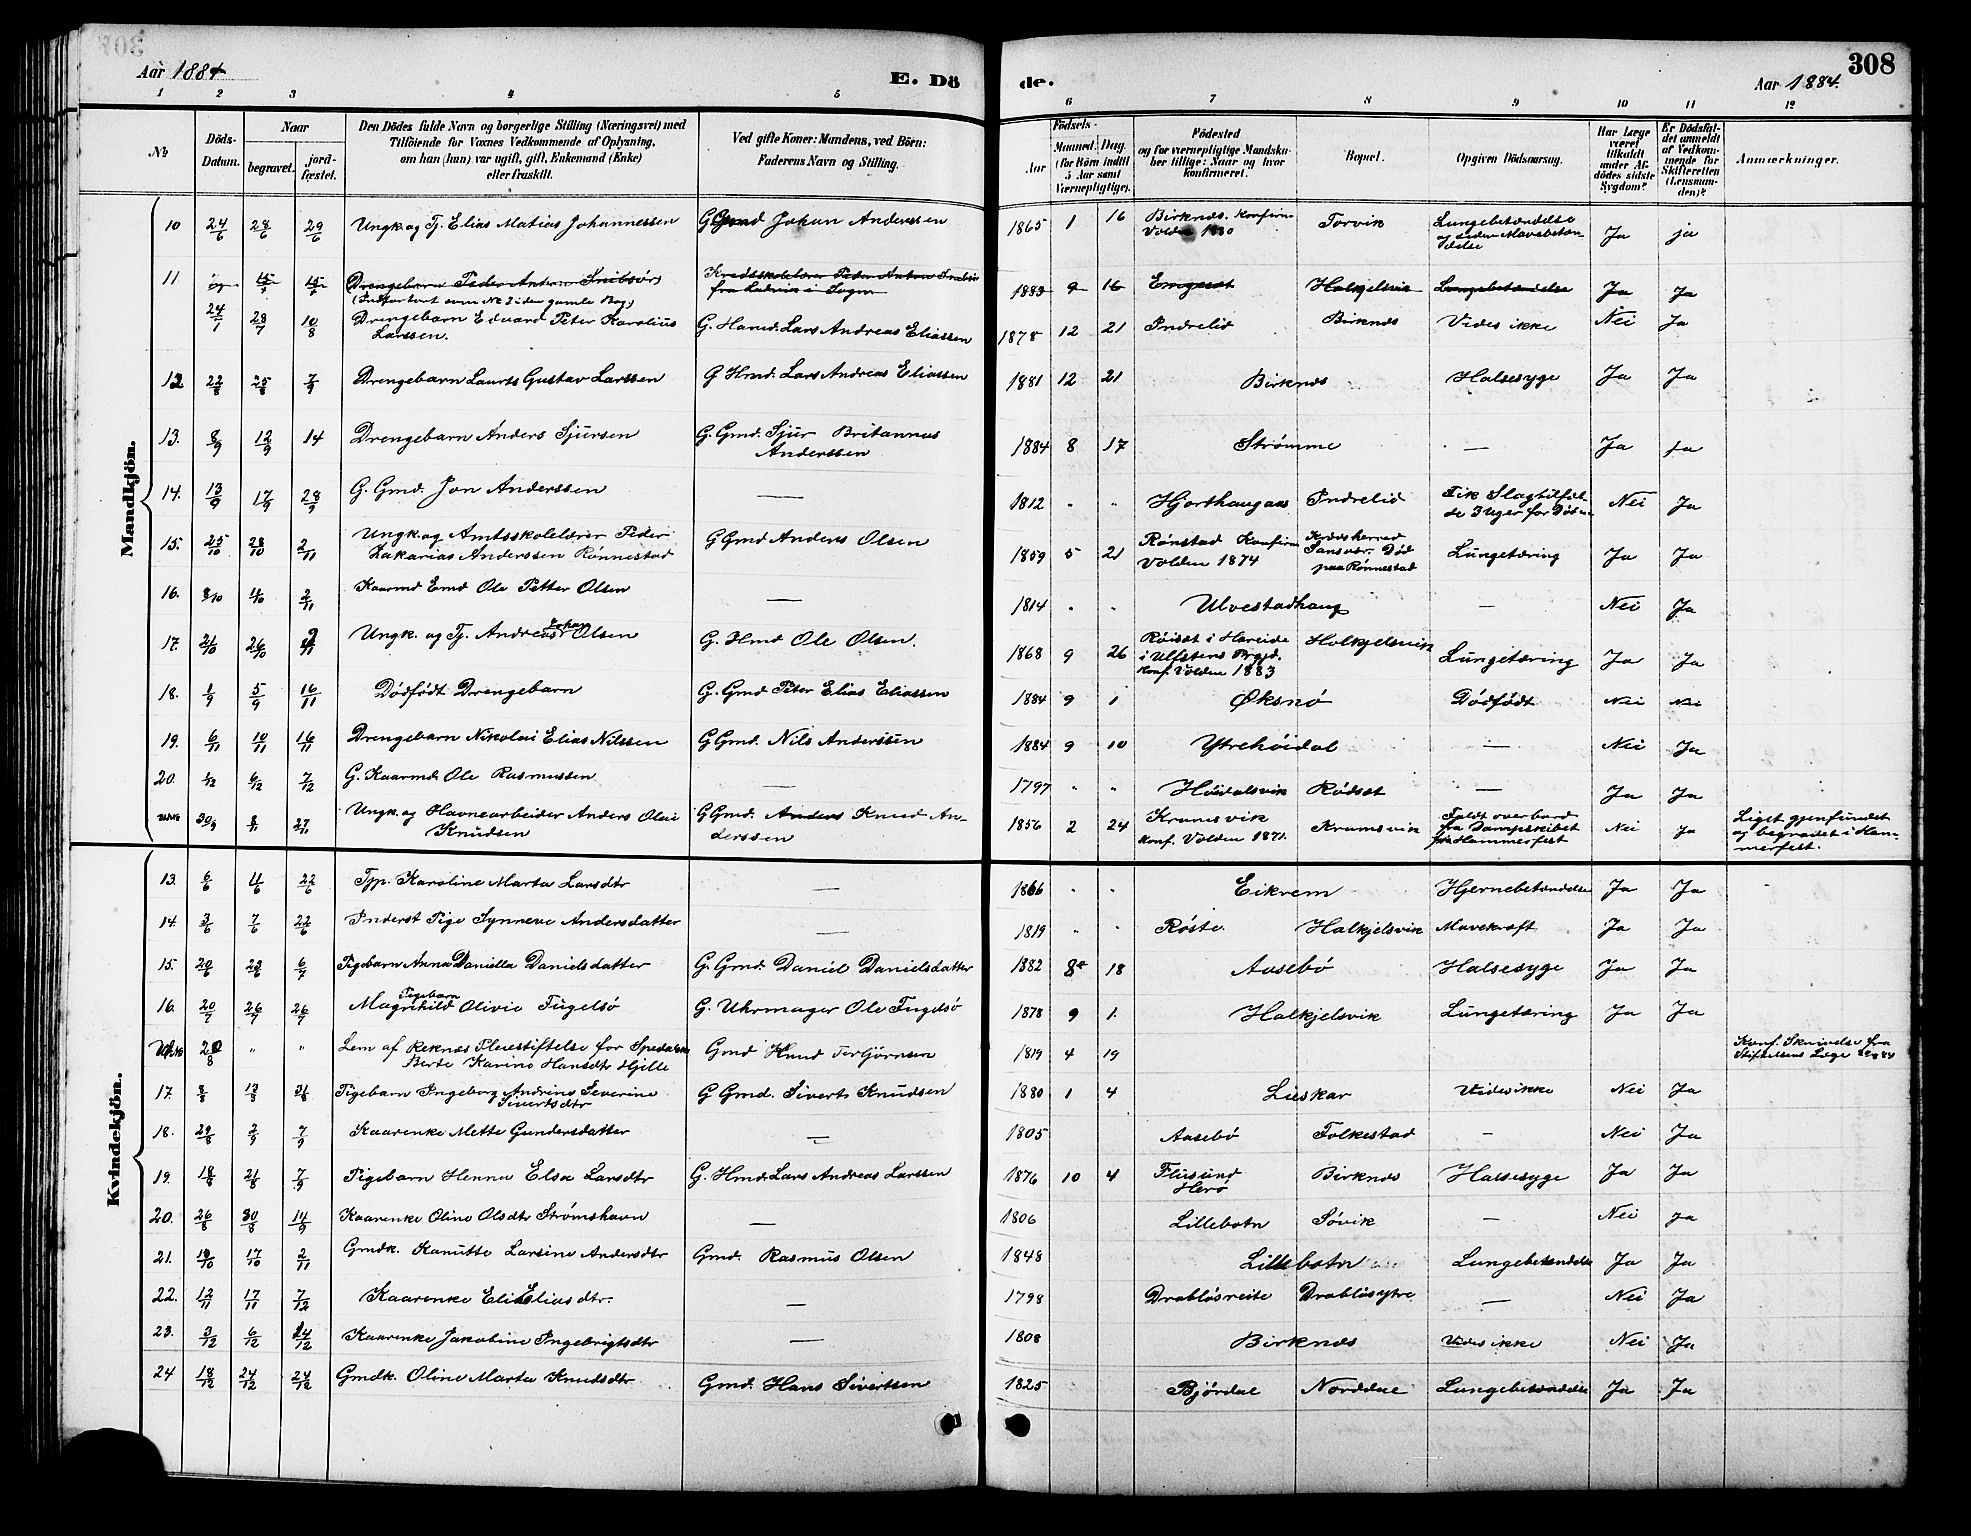 308
Aar 1884
E. Dö
de.
Aar 1884.
1 2 3 4 5 6 7 8 9 10 11 12
№
Döds-Datum.
Naar
begravet.
jord-fæstet.
Den Dödes fulde Navn og borgerlige Stilling (Næringsvei) med
Tilföiende for Voxnes Vedkommende af Oplysning,
om han (hun) var ugift, gift, Enkemand (Enke)
eller fraskilt.
Ved gifte Koner: Mandens, ved Börn:
Faderens Navn og Stilling.
Födsels-
Aar
Maaned. Dag
(for Börn indtil
5 Aar samt
Værnepligtige).
Födested
og for værnepligtige Mandska-
ber tillige: Naar og hvor
konfirmeret.
Bopæl.
Opgiven Dödsaarsag.
Har Læge
været
tilkaldt
under Af-
dödes sidste
Sygdom?
Er Dödsfal-
det anmeldt
af Vedkom-
mende for
Skifteretten
(Lensman-
den)?
Anmærkninger.
Mandkjön.
10 24/6 28/6 29/6 Ungk. og Tj. Elias Matias Johannessen G Gmd Johan Anderssen 1865 1 16 Birknes. Konfirm Volden 1880 Torvik Lungebetændelse og siden Mavebetændelse Ja ja
11 15/ 15/ Drengebarn Peder Anton Snibsör Kredsskolelærer Peder Anton Snibsör fra Ladvik i Sogn 1883 9 16 Halkjelsvik Lungebetændelse Ja Ja
(Indfört som № 2 i den gamle Bog)
24/1 28/7 10/8 Drengebarn Edvard Peter Karolius Larssen. G. Hmd. Lars Andreas Eliassen 1878 12 21 Indrelid Birknes Vides ikke Nei Ja
12 22/8 25/8 7/9 Drengebarn Laurts Gustav Larssen G Hmd. Lars Andreas Eliassen 1881 12 21 Birknes Halsesyge Ja Ja
13. 8/9 12/9 14 Drengebarn Anders Sjursen G. Gmd. Sjur Britannus Anderssen 1884 8 17 Strømme — Ja Ja
14. 13/9 17/9 28/9 G. Gmd. Jon Anderssen — 1812 " " Hjorthaugaas Indrelid Fik Slagtilfælde 3 Uger før Døden Nei Ja
15. 25/10 28/10 2/11 Ungk. og Amtsskolelærer Peder Zakarias Anderssen Rönnestad G Gmd Anders Olsen 1859 5 21 Rönstad Konfirm Volden 1874 Død paa Rönnestad Lungetæring Ja Ja
16. 8/10 4/10 2/11 Kaarmd Emd Ole Petter Olsen — 1814 " " Ulvestadhaug — Nei Ja
17. 21/10 26/10 2/11 Ungk. og Tj. Andreas Johan Olsen G. Hmd Ole Olsen. 1868 9 26 Røiset i Hareide i Ulfstens Prgjd. Konf. Volden 1883 Halkjelsvik Lungetæring Ja Ja
18. 1/9 5/9 16/11 Dödfödt Drengebarn G. Gmd Peter Elias Eliassen 1884 9 1 Øksnø Dödfödt Nei Nei
19. 6/11 10/11 16/11 Drengebarn Nikolai Elias Nilssen G Gmd. Nils Anderssen 1884 9 10 Ytrehöidal — Nei Ja
20. 1/12 6/12 7/12 G. Kaarmd Ole Rasmussen — 1797 " " Höidalsvik Rödset — Ja Ja
30/9 8/11 27/11 Ungk. og Havnearbeider Anders Olai Knudsen G Gmd. Anders Knud Anderssen 1856 2 24 Kramsvik Konf. Volden 1871. Kramsvik Faldt overbord fra Dampskibet fra Hammerfest Nei Ja Liget gjenfundet og begravet i Hammerfest.
Kvindekjön.
13. 6/6 11/6 22/6 Tjp. Karoline Marta Larsdtr — 1866 " " Eikrem Hjernebetændelse Ja Ja
14. 3/6 7/6 22/6 Inderst Pige Synneve Andersdatter — 1819 " " Røste. Halkjelsvik Mavekræft Ja Ja
15. 20/6 23/6 6/7 Pigebarn Anna Daniella Danielsdatter G. Gmd. Daniel Danielsdatter 1882 8 18 Aasebø Halsesyge Ja Ja
16. 20/7 26/7 26/7 Pigebarn Magnhild Olivie Fugelsö G. Uhrmager Ole Fugelsö 1878 9 1. Halkjelsvik Lungetæring Ja Ja
20/8 " " Lem af Reknes Pleiestiftelse for Spedalske Berte Karine Hansdtr Hjelle Gmd Knud Torgjørnsen 1819 4 19 Konf. Skrivelse fra Stiftelsens Læge
17. 8/8 13/8 31/8 Pigebarn Ingeborg Andrine Severine Sivertsdtr G Gmd. Sivert Knudsen 1880 1 4 Lieskar Vides ikke Nei Ja
18. 29/8 2/9 7/9 Kaarenke Mette Gundersdatter — 1805 Aasebø Folkestad — Nei Ja
19. 18/8 21/8 7/9 Pigebarn Henna Elsa Larsdtr G. Hmd. Lars Andreas Larssen 1876 10 4 Flusund Herø Birknes Halsesyge Ja Ja
20. 26/8 30/8 14/9 Kaarenke Oline Olsdtr Strømshavn — 1806 Lillebotn Søvik — Nei Ja
21. 10/10 17/10 2/11 Gmdk. Kanutte Larsine Andersdtr Gmd. Rasmus Olsen 1848 Lillebotn Lungebetændelse Ja Ja
22. 12/11 17/11 7/12 Kaarenke Eli Eliasdtr. — 1798 Drabløsreite Drabløsytre — Nei Ja
23. 3/12 6/12 14/12 Kaarenke Jakobine Ingebrigtsdtr — 1808 Birknes Vides ikke Nei Ja
24 18/12 24/12 24/12 Gmdk. Oline Marta Knudsdtr Gmd. Hans Sivertsen 1825 Bjørdal Norddal Lungebetændelse Ja Ja